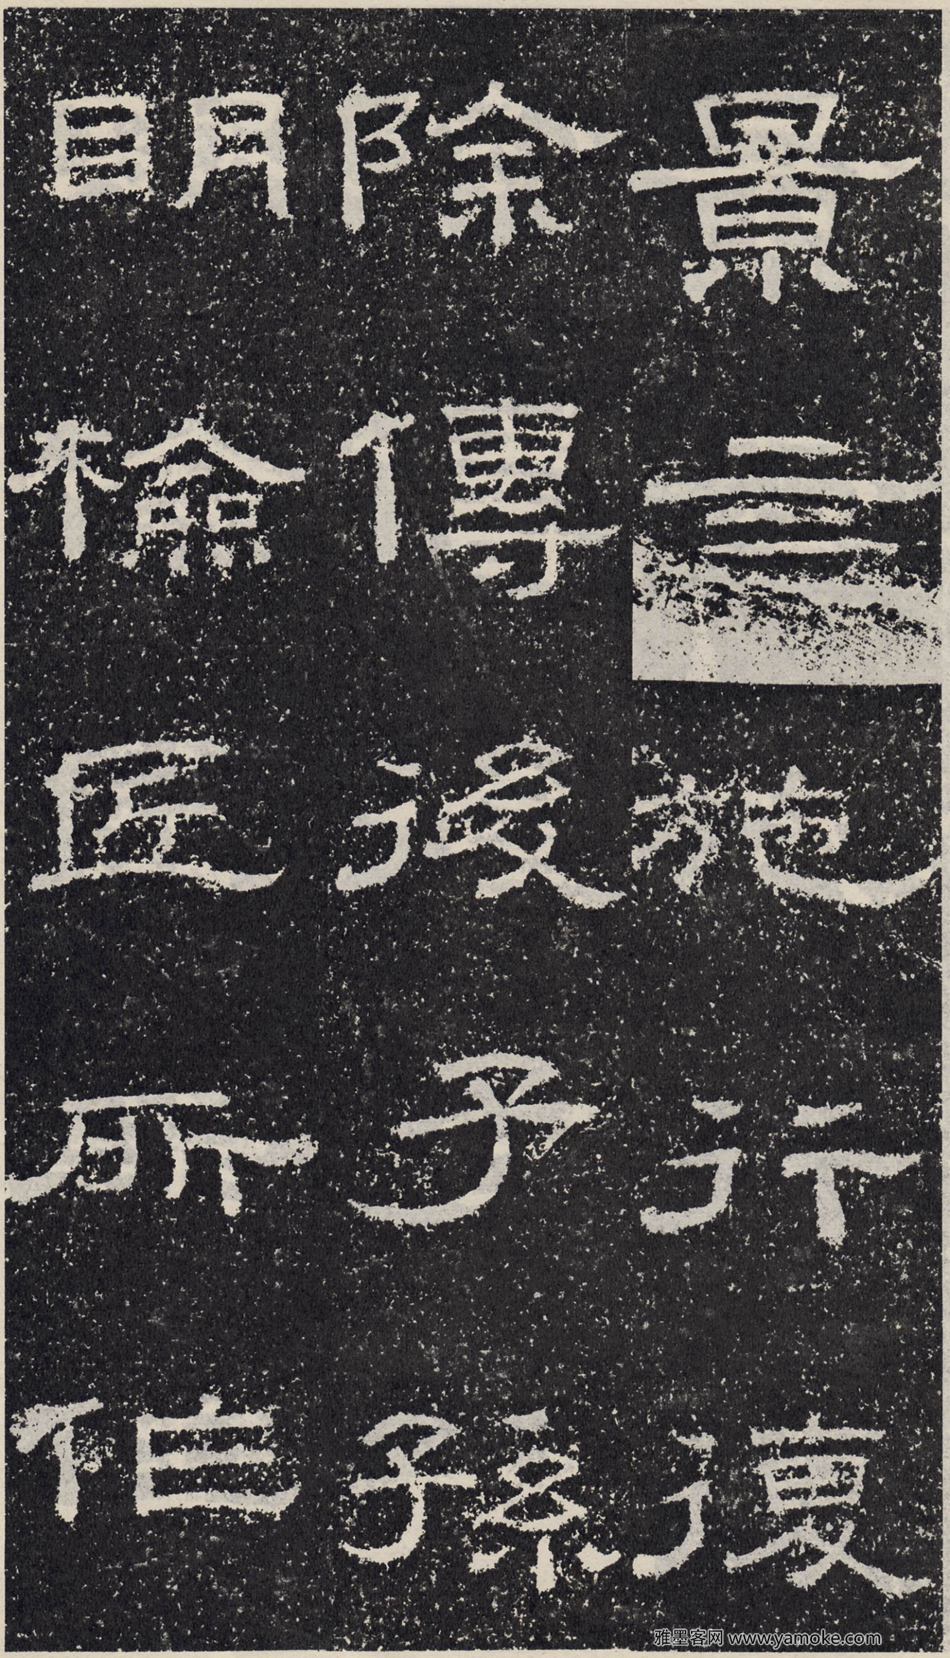 景言施行復
除傳後子孫
明檢匠所作
雅墨客网 www.yamoke.com